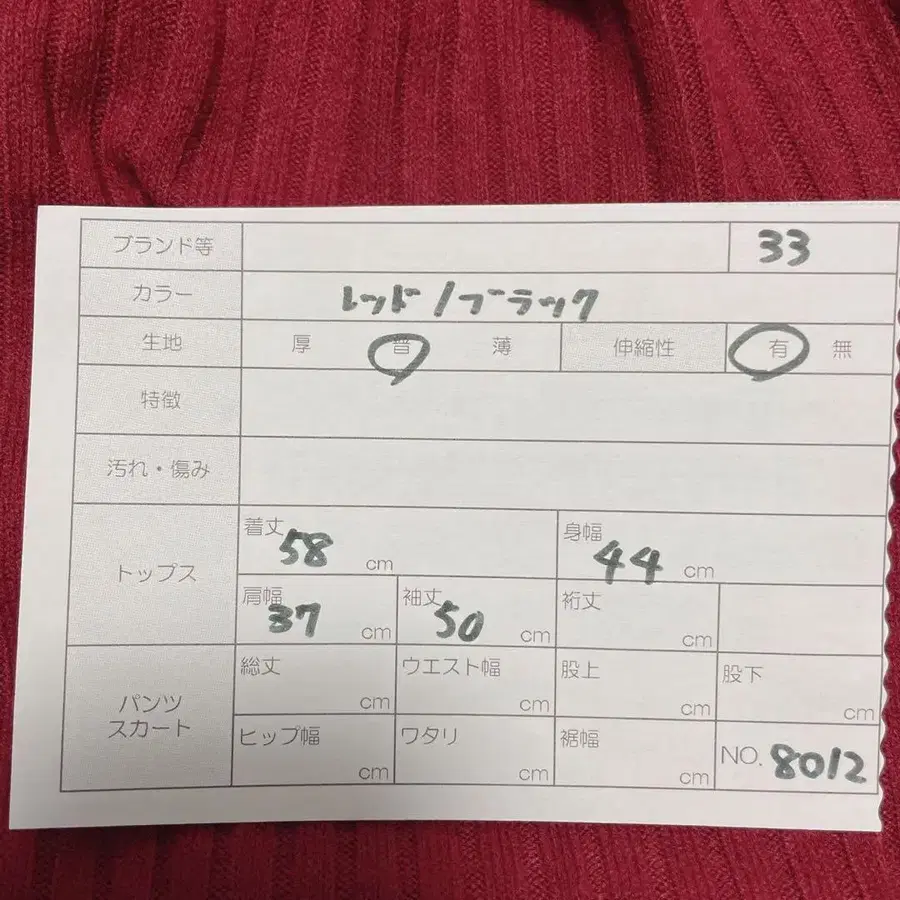 ブランド等 33
カラー レッド/ブラック
生地 厚 普 薄 伸縮性 有 無
特徴
汚れ・傷み
トップス
着丈 58 cm 身幅 44 cm
肩幅 37 cm 袖丈 50 cm 裄丈 cm
パンツ
スカート
総丈 cm ウエスト幅 cm 股上 cm 股下 cm
ヒップ幅 cm ワタリ cm 裾幅 cm NO. 8012